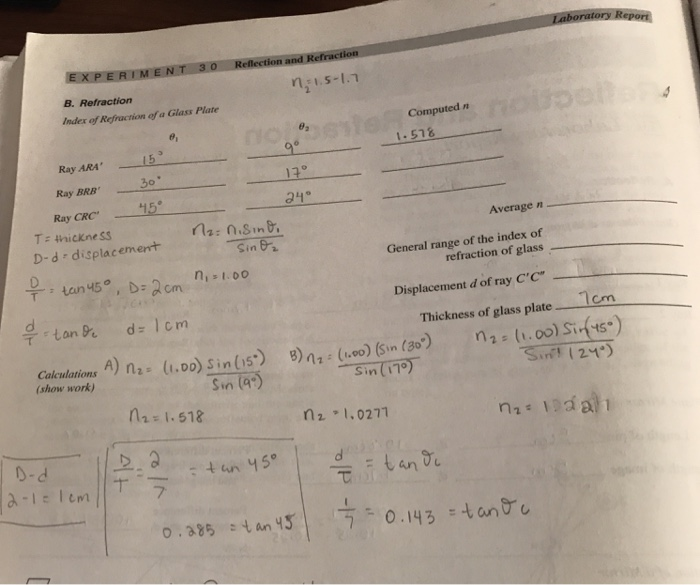 Laboratory Report
EXPERIMENT 30 Reflection and Refraction
n₂=1.5-1.7
B. Refraction
Index of Refraction of a Glass Plate
θ₁ θ₂ Computed n
Ray ARA' 15° 9° 1.578
Ray BRB' 30° 17°
Ray CRC' 45° 24°
Average n
T= thickness
D-d = displacement
n₂= n₁Sinθ₁ / Sinθ₂
General range of the index of
refraction of glass
n₁ = 1.00
D/T = tan 45°, D= 2cm
Displacement d of ray C'C"
Thickness of glass plate 7cm
d/T = tan θ₂ d= 1cm
Calculations
(show work)
A) n₂= (1.00) Sin(15°) / Sin(9°)
B) n₂= (1.00) (Sin(30°) / Sin(17°)
n₂= (1.00) Sin(45°) / Sin (24°)
n₂=1.578
n₂ = 1.0277
D-d
2-1=1cm
D/T = 2/7 = tan 45°
0.285 = tan 45
d/T = tan θc
1/7 = 0.143 = tan θc